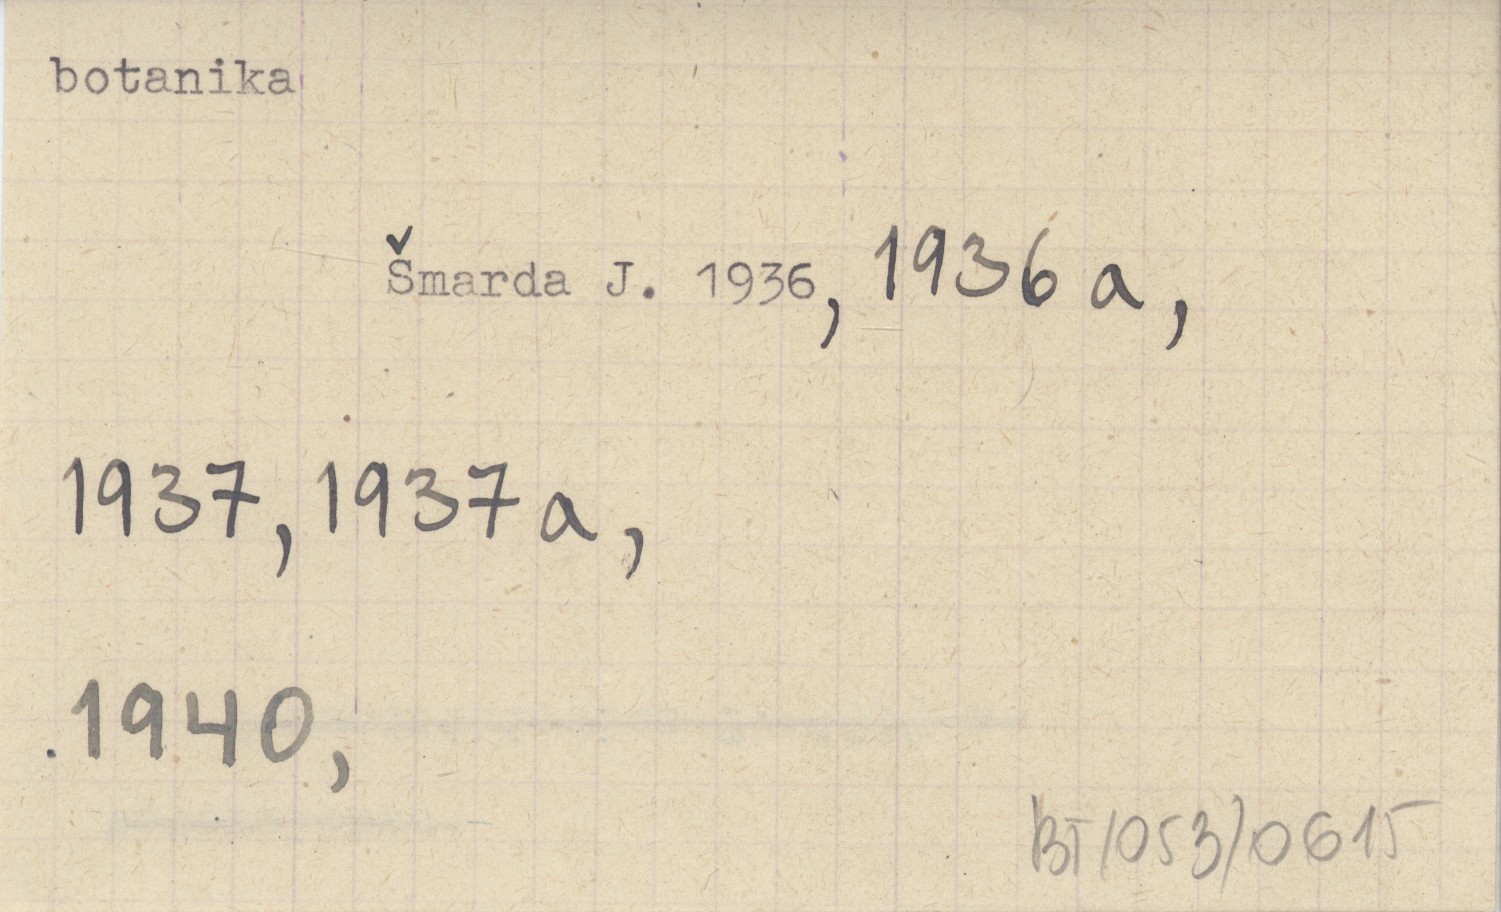 botanika
Šmarda J. 1936, 1936 a,
1937, 1937 a,
1940,
BT/053/0615